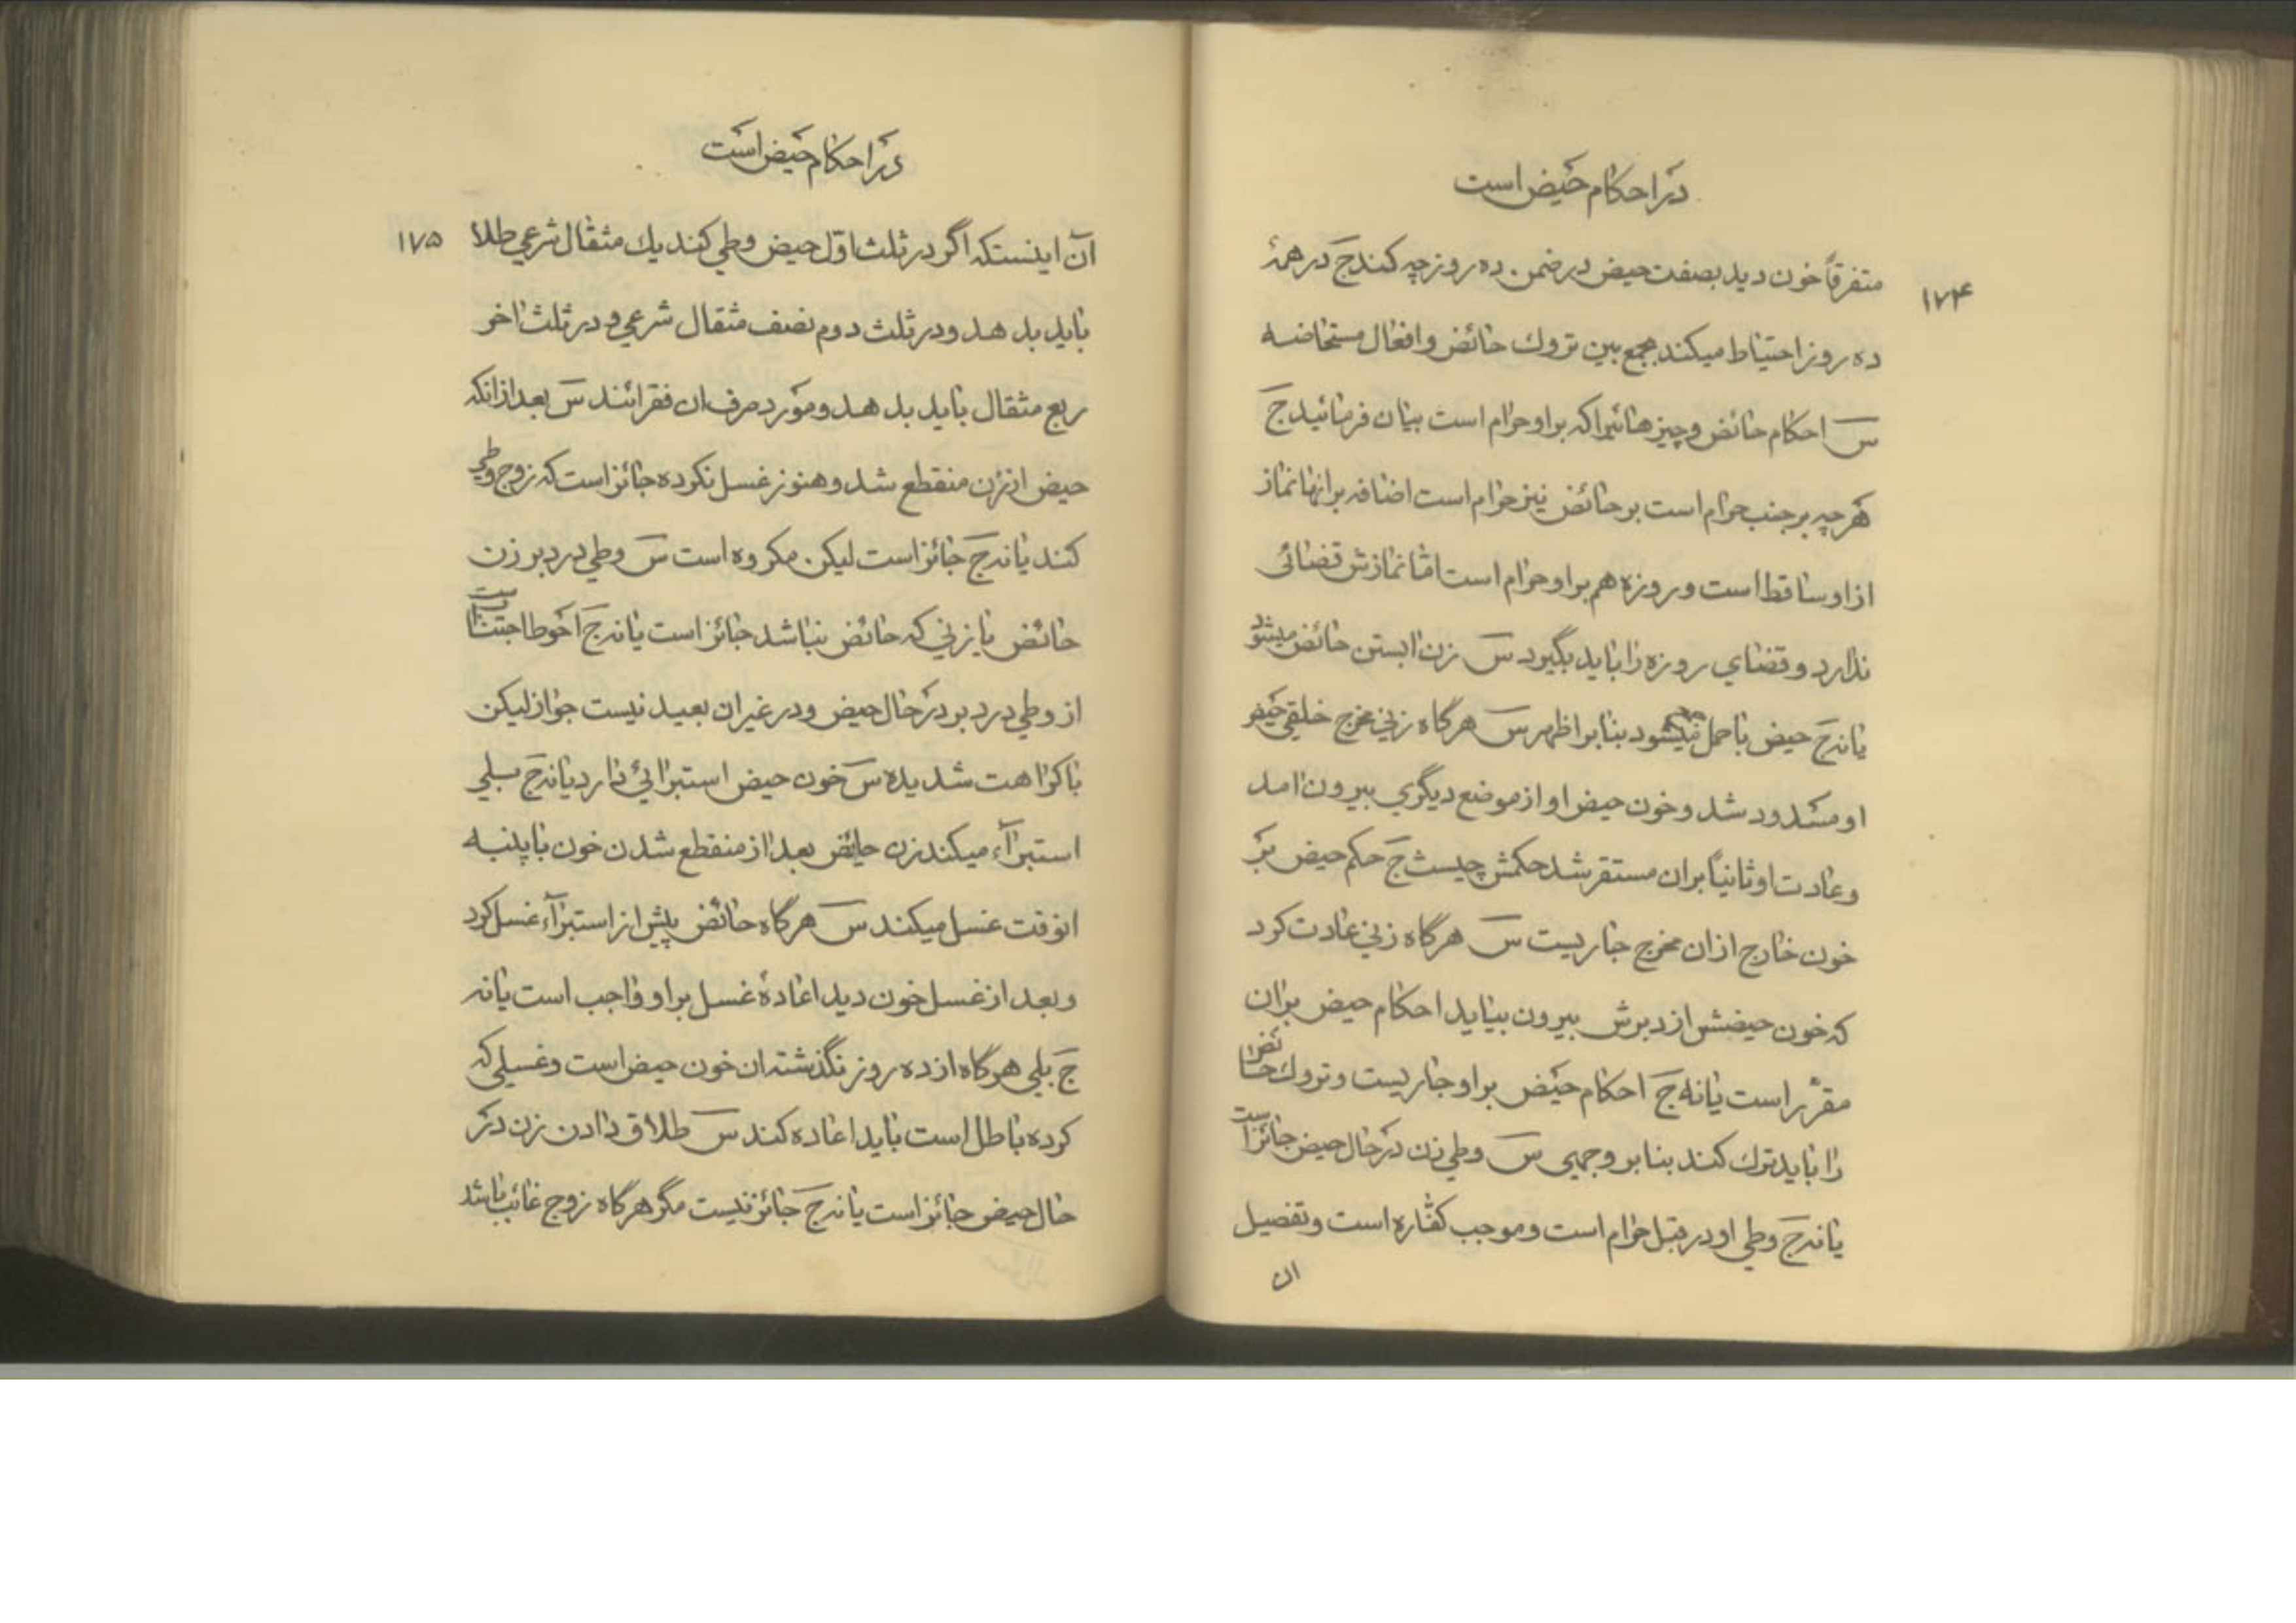 در احکام حیض است
۱۷۴
متفرقاً خون دید بصفت حیض در ضمن ده روز چه کند ج در همهٔ
ده روز احتیاط میکند بجمع بین تروك حائض و افعال مستحاضه
س احکام حائض و چیزهائیرا که بر او حرام است بیان فرمائید ج
هر چه بر جنب حرام است بر حائض نیز حرام است اضافه بر انها نماز
از او ساقط است و روزه هم بر او حرام است امّا نمازش قضائی
ندارد و قضای روزه را باید بگیرد س زن ابستن حائض میشود
یا نه ج حیض با حمل جمع نمیشود بنا بر اظهر س هرگاه زنی مخرج خلقی حیض
او مسدود شد و خون حیض او از موضع دیگری بیرون امد
و عادت او ثانیاً بران مستقر شد حکمش چیست ج حکم حیض بر
خون خارج از ان مخرج جاریست س هرگاه زنی عادت کرد
که خون حیضش از دبرش بیرون بیاید احکام حیض بر ان
مقرّر است یا نه ج احکام حیض بر او جاریست و تروك حائض
را باید ترك کند بنا بر وجهی س وطی زن در حال حیض جائز است
یا نه ج وطی او در قبل حرام است و موجب کفّاره است و تفصیل
ان
در احکام حیض است
۱۷۵
آن اینستکه اگر در ثلث اوّل حیض وطی کند یك مثقال شرعی طلا
باید بدهد و در ثلث دوم نصف مثقال شرعی و در ثلث اخر
ربع مثقال باید بدهد و مورد صرف ان فقرائند س بعد از انکه
حیض از زن منقطع شد و هنوز غسل نکرده جائز است که زوج وطی
کند یا نه ج جائز است لیکن مکروه است س وطی در دبر زن
حائض یا زنی که حائض نباشد جائز است یا نه ج احوط اجتناب است
از وطی در دبر در حال حیض و در غیر ان بعید نیست جواز لیکن
با کراهت شدیده س خون حیض استبرائی دارد یا نه ج بلی
استبرآء میکند زن حایض بعد از منقطع شدن خون با پنبه
انوقت غسل میکند س هرگاه حائض پیش از استبرآء غسل کرد
و بعد از غسل خون دید اعادهٔ غسل بر او واجب است یا نه
ج بلی هرگاه از ده روز نگذشته ان خون حیض است و غسلی که
کرده باطل است باید اعاده کند س طلاق دادن زن در
حال حیض جائز است یا نه ج جائز نیست مگر هرگاه زوج غائب باشد